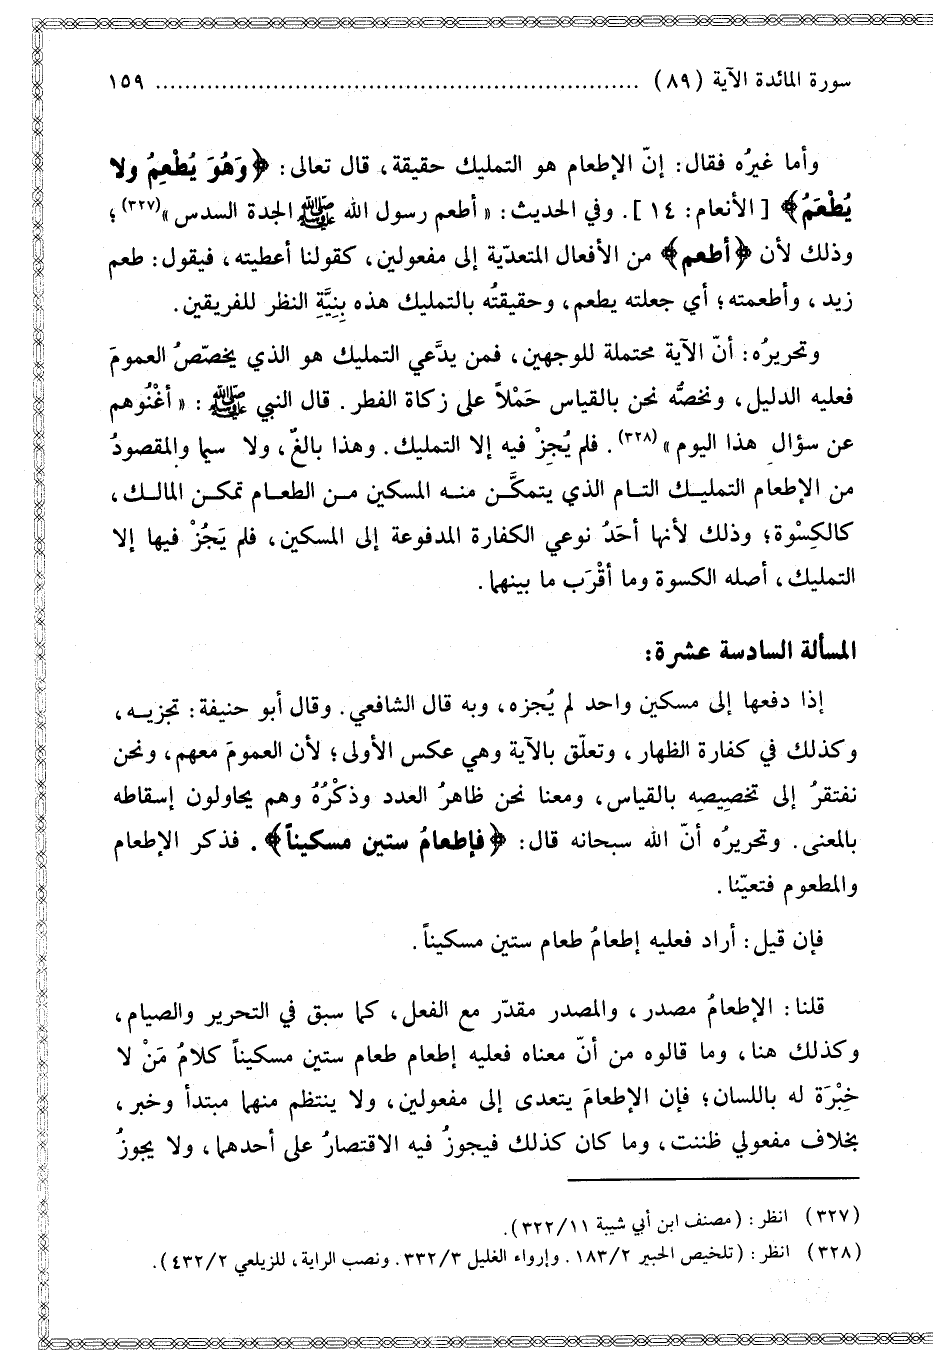 سورة المائدة الآية (٨٩) ................................................................ ١٥٩
وأما غيرُه فقال: إنّ الإطعام هو التمليك حقيقة، قال تعالى: ﴿وَهُوَ يُطْعِمُ ولا
يُطْعَمُ﴾ [الأنعام: ١٤]. وفي الحديث: «أطعم رسول الله ﷺ الجدة السدس»(٣٢٧)؛
وذلك لأن ﴿أطعم﴾ من الأفعال المتعدّية إلى مفعولين، كقولنا أعطيته، فيقول: طعم
زيد، وأطعمته؛ أي جعلته يطعم، وحقيقتُه بالتمليك هذه بِنِيَّةِ النظر للفريقين.
وتحريرُه: أنّ الآية محتملة للوجهين، فمن يدَّعي التمليك هو الذي يخصّصُ العمومَ
فعليه الدليل، ونخصُّه نحن بالقياس حَمْلاً على زكاة الفطر. قال النبي ﷺ: «أغْنُوهم
عن سؤالِ هذا اليوم»(٣٢٨). فلم يُجِزْ فيه إلا التمليك. وهذا بالغٌ، ولا سيما والمقصودُ
من الإطعام التمليك التام الذي يتمكَّن منه المسكين من الطعام تمكن المالك،
كالكِسْوة؛ وذلك لأنها أحَدُ نوعي الكفارة المدفوعة إلى المسكين، فلم يَجُزْ فيها إلا
التمليك، أصله الكسوة وما أقْرَب ما بينهما.
المسألة السادسة عشرة:
إذا دفعها إلى مسكين واحد لم يُجزه، وبه قال الشافعي. وقال أبو حنيفة: تجزيه،
وكذلك في كفارة الظهار، وتعلّق بالآية وهي عكس الأولى؛ لأن العمومَ معهم، ونحن
نفتقرُ إلى تخصيصِه بالقياس، ومعنا نحن ظاهرُ العدد وذكْرُهُ وهم يحاولون إسقاطه
بالمعنى. وتحريرُه أنّ الله سبحانه قال: ﴿فإطعامُ ستين مسكيناً﴾. فذكر الإطعام
والمطعوم فتعيّنا.
فإن قيل: أراد فعليه إطعامُ طعام ستين مسكيناً.
قلنا: الإطعامُ مصدر، والمصدر مقدّر مع الفعل، كما سبق في التحرير والصيام،
وكذلك هنا، وما قالوه من أنّ معناه فعليه إطعام طعام ستين مسكيناً كلامُ مَنْ لا
خِبْرَة له باللسان؛ فإن الإطعامَ يتعدى إلى مفعولين، ولا ينتظم منهما مبتدأ وخبر،
بخلاف مفعولي ظننت، وما كان كذلك فيجوزُ فيه الاقتصارُ على أحدهما، ولا يجوزُ
(٣٢٧) انظر: (مصنف ابن أبي شيبة ٣٢٢/١١).
(٣٢٨) انظر: (تلخيص الحبير ١٨٣/٢. وإرواء الغليل ٣٣٢/٣. ونصب الراية، للزيلعي ٤٣٢/٢).